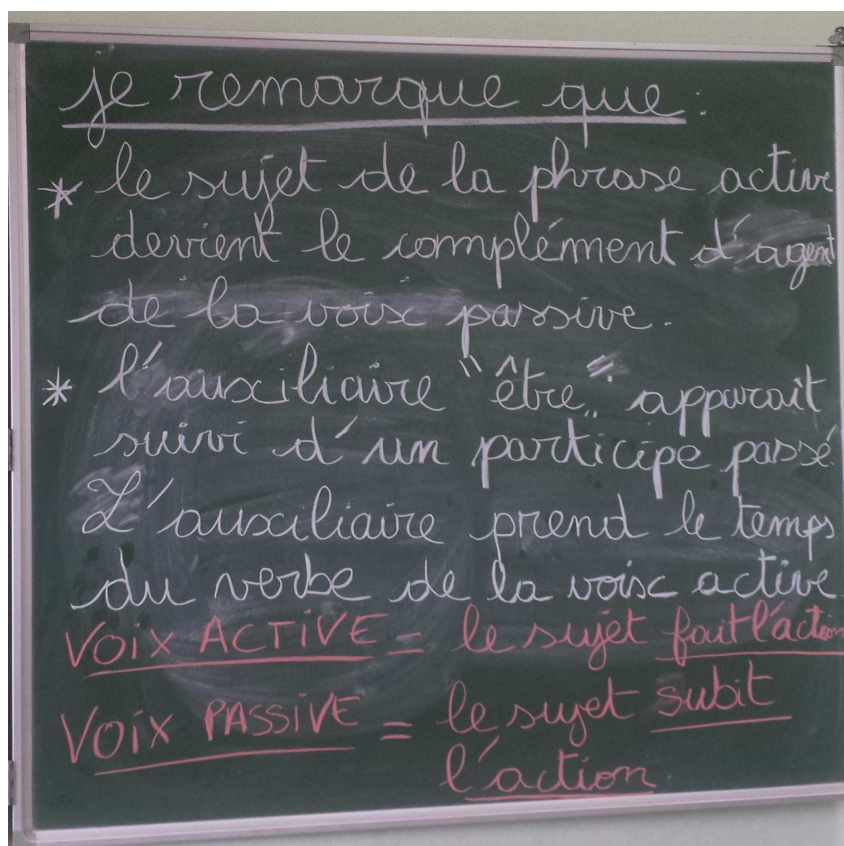 je remarque que :
* le sujet de la phrase active
devient le complément d'agent
de la voix passive.
* l'auxiliaire "être" apparaît
suivi d'un participe passé
L'auxiliaire prend le temps
du verbe de la voix active
VOIX ACTIVE = le sujet fait l'action
VOIX PASSIVE = le sujet subit
l'action.